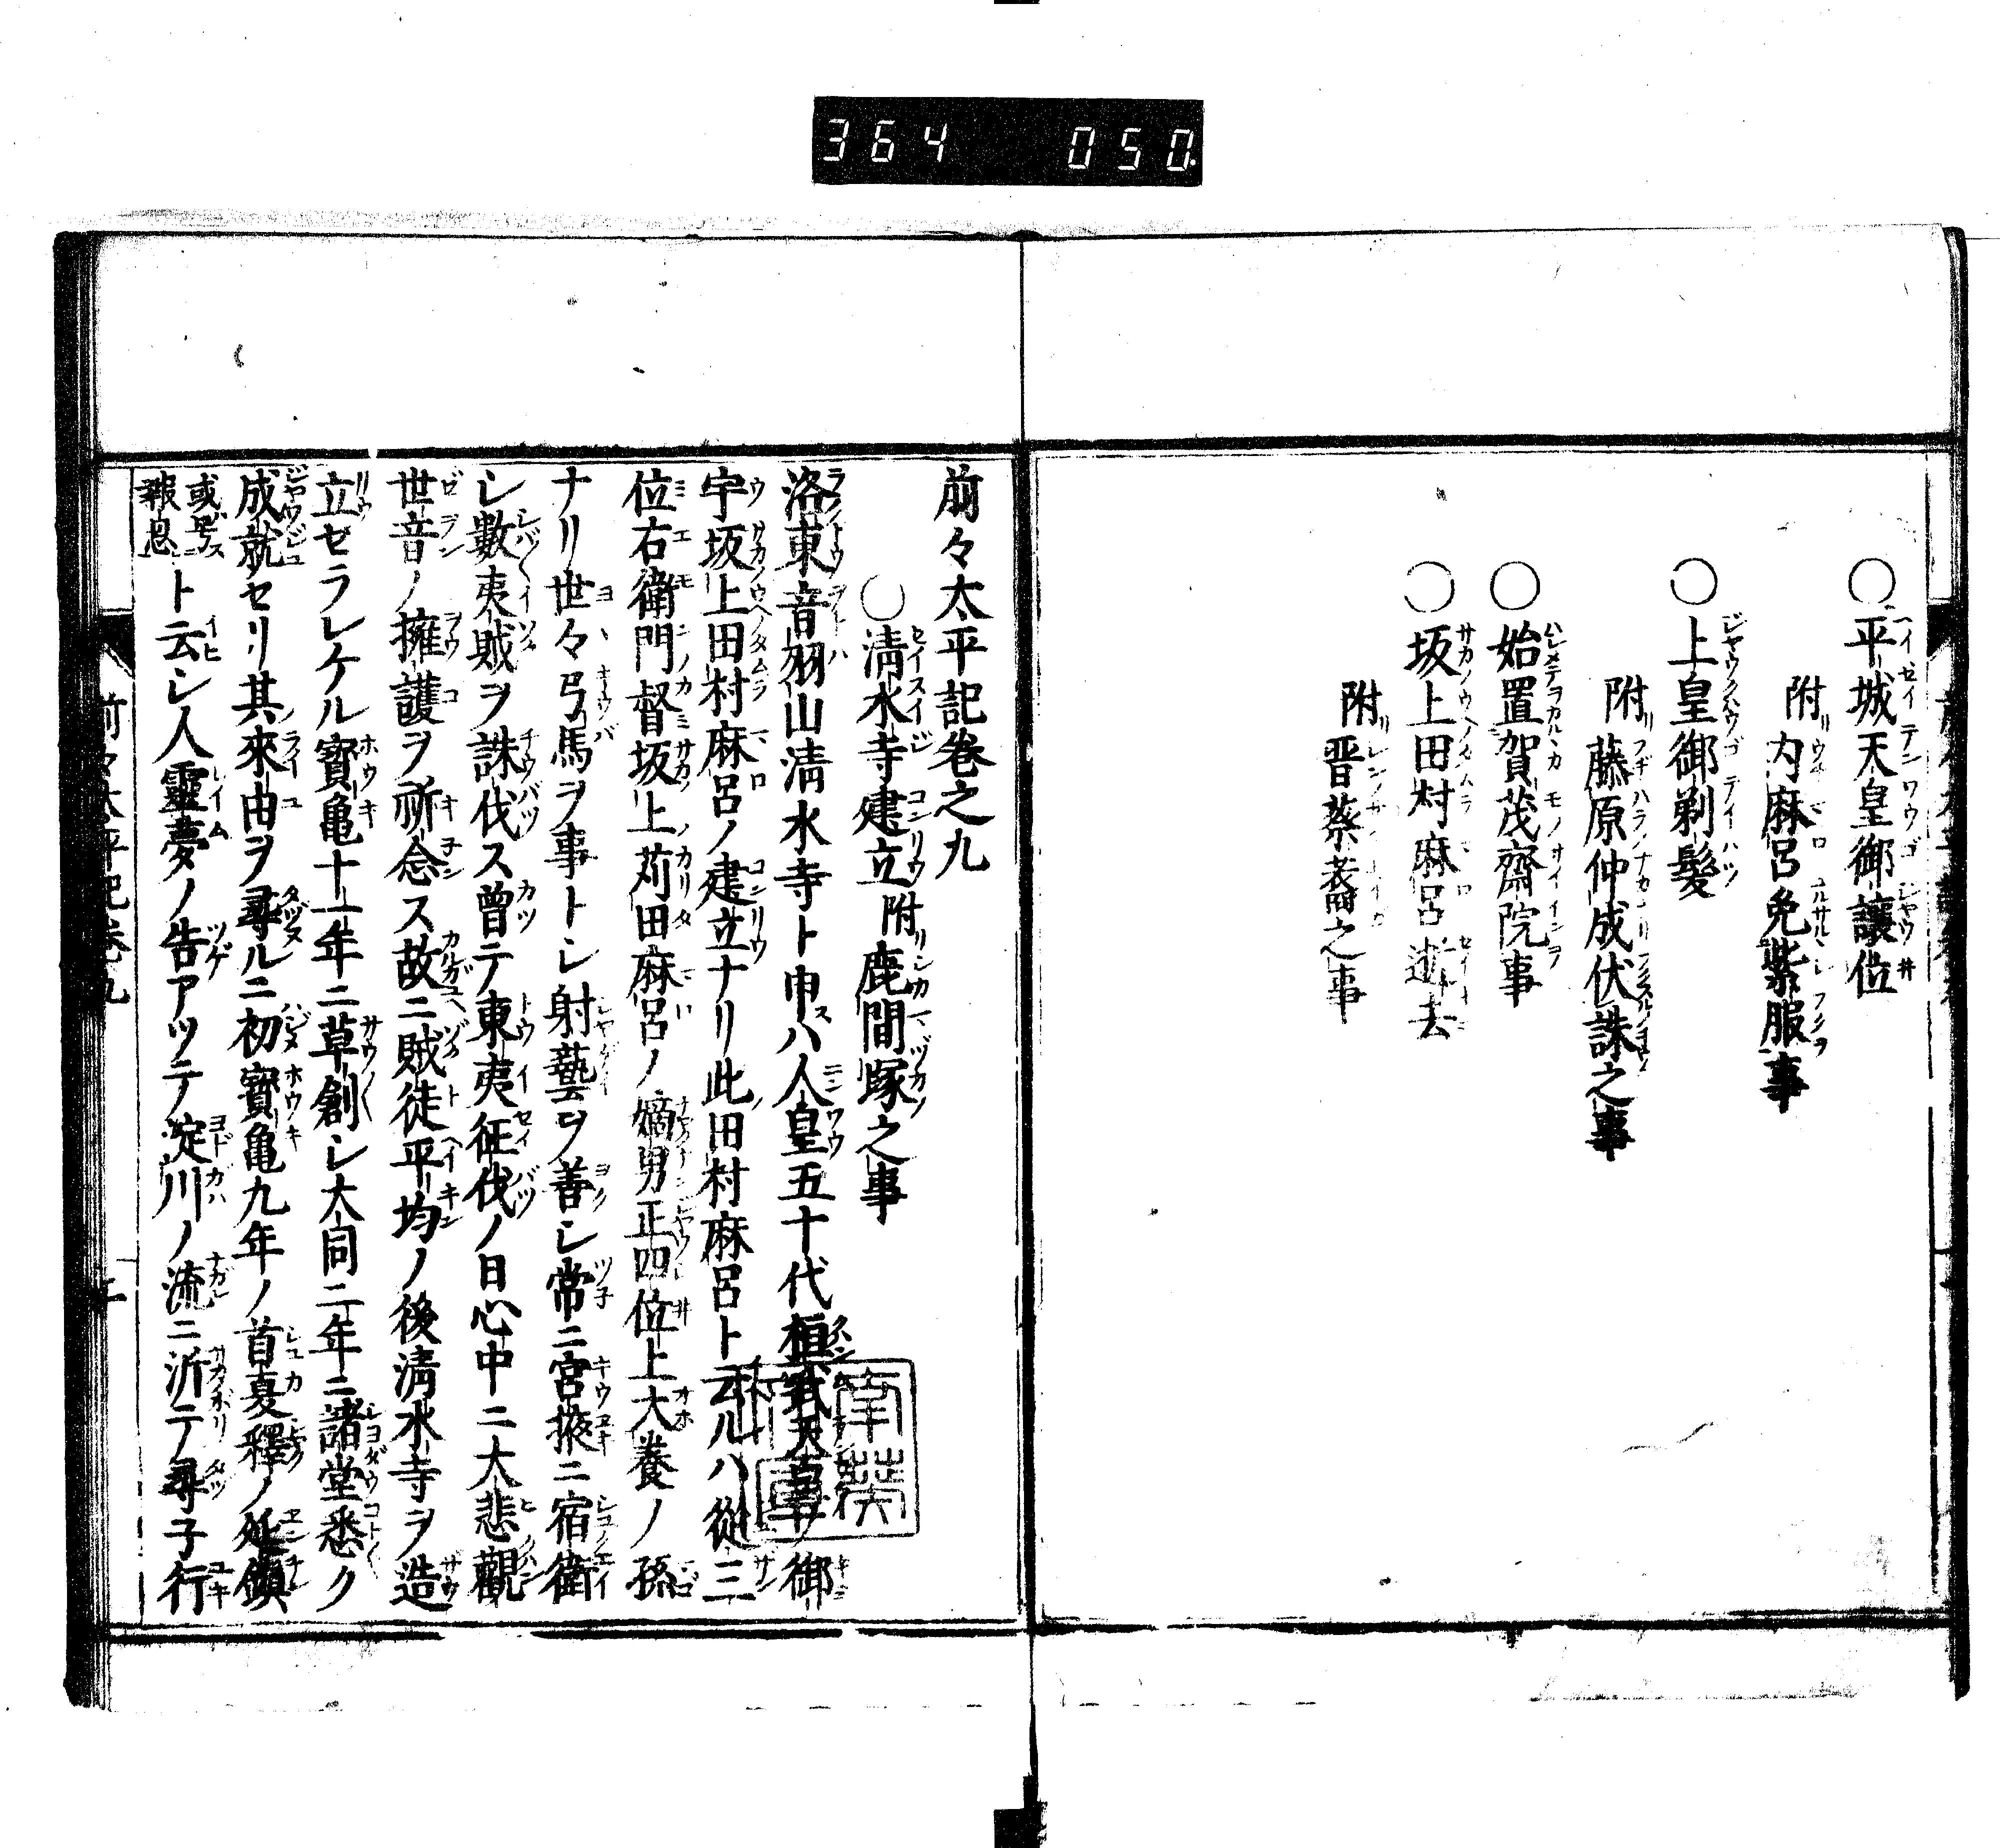 364 050
○平城天皇御讓位
附内麻呂免紫服事
○上皇御剃髮
附藤原仲成伏誅之事
○始置賀茂齋院事
○坂上田村麻呂逝去
附晋蔡裔之事
前々太平記卷之九
○淸水寺建立附鹿間塚之事
洛東音羽山淸水寺ト申ハ人皇五十代桓武天皇ノ御
宇坂上田村麻呂ノ建立ナリ此田村麻呂ト云ルハ從三
位右衞門督坂上苅田麻呂ノ嫡男正四位上大養ノ孫
ナリ世々弓馬ヲ事トシ射藝ヲ善シ常ニ宮掖ニ宿衞
シ數夷賊ヲ誅伐ス曾テ東夷征伐ノ日心中ニ大悲觀
世音ノ擁護ヲ祈念ス故ニ賊徒平均ノ後淸水寺ヲ造
立セラレケル寳亀十一年ニ草創シ大同二年ニ諸堂悉ク
成就セリ其來由ヲ尋ルニ初寳亀九年ノ首夏釋ノ延鎭
或号報恩ト云シ人靈夢ノ告アツテ淀川ノ流ニ泝テ尋子行
前々太平記卷九